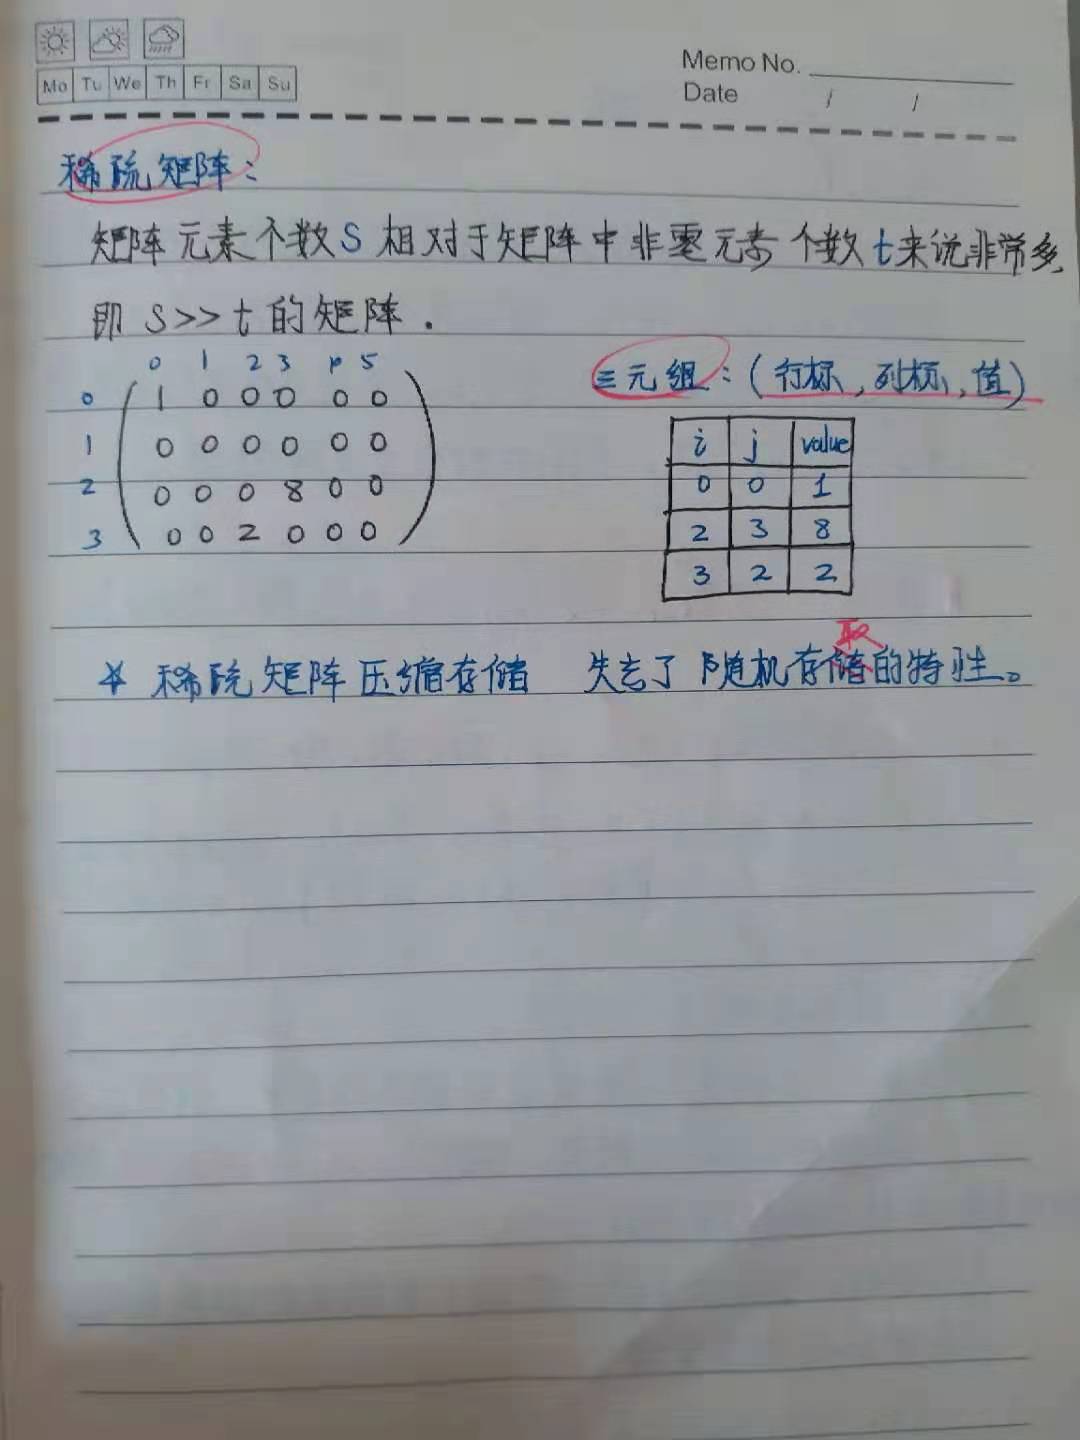 Mo Tu We Th Fr Sa Su
Memo No.
Date / /
稀疏矩阵：
矩阵元素个数S相对于矩阵中非零元素个数t来说非常多,
即 S>>t 的矩阵.
0 1 2 3 4 5
0 1 0 0 0 0 0
1 0 0 0 0 0 0
2 0 0 0 8 0 0
3 0 0 2 0 0 0
三元组：(行标,列标,值)
i j value
0 0 1
2 3 8
3 2 2
取
* 稀疏矩阵压缩存储 失去了随机存储的特性。